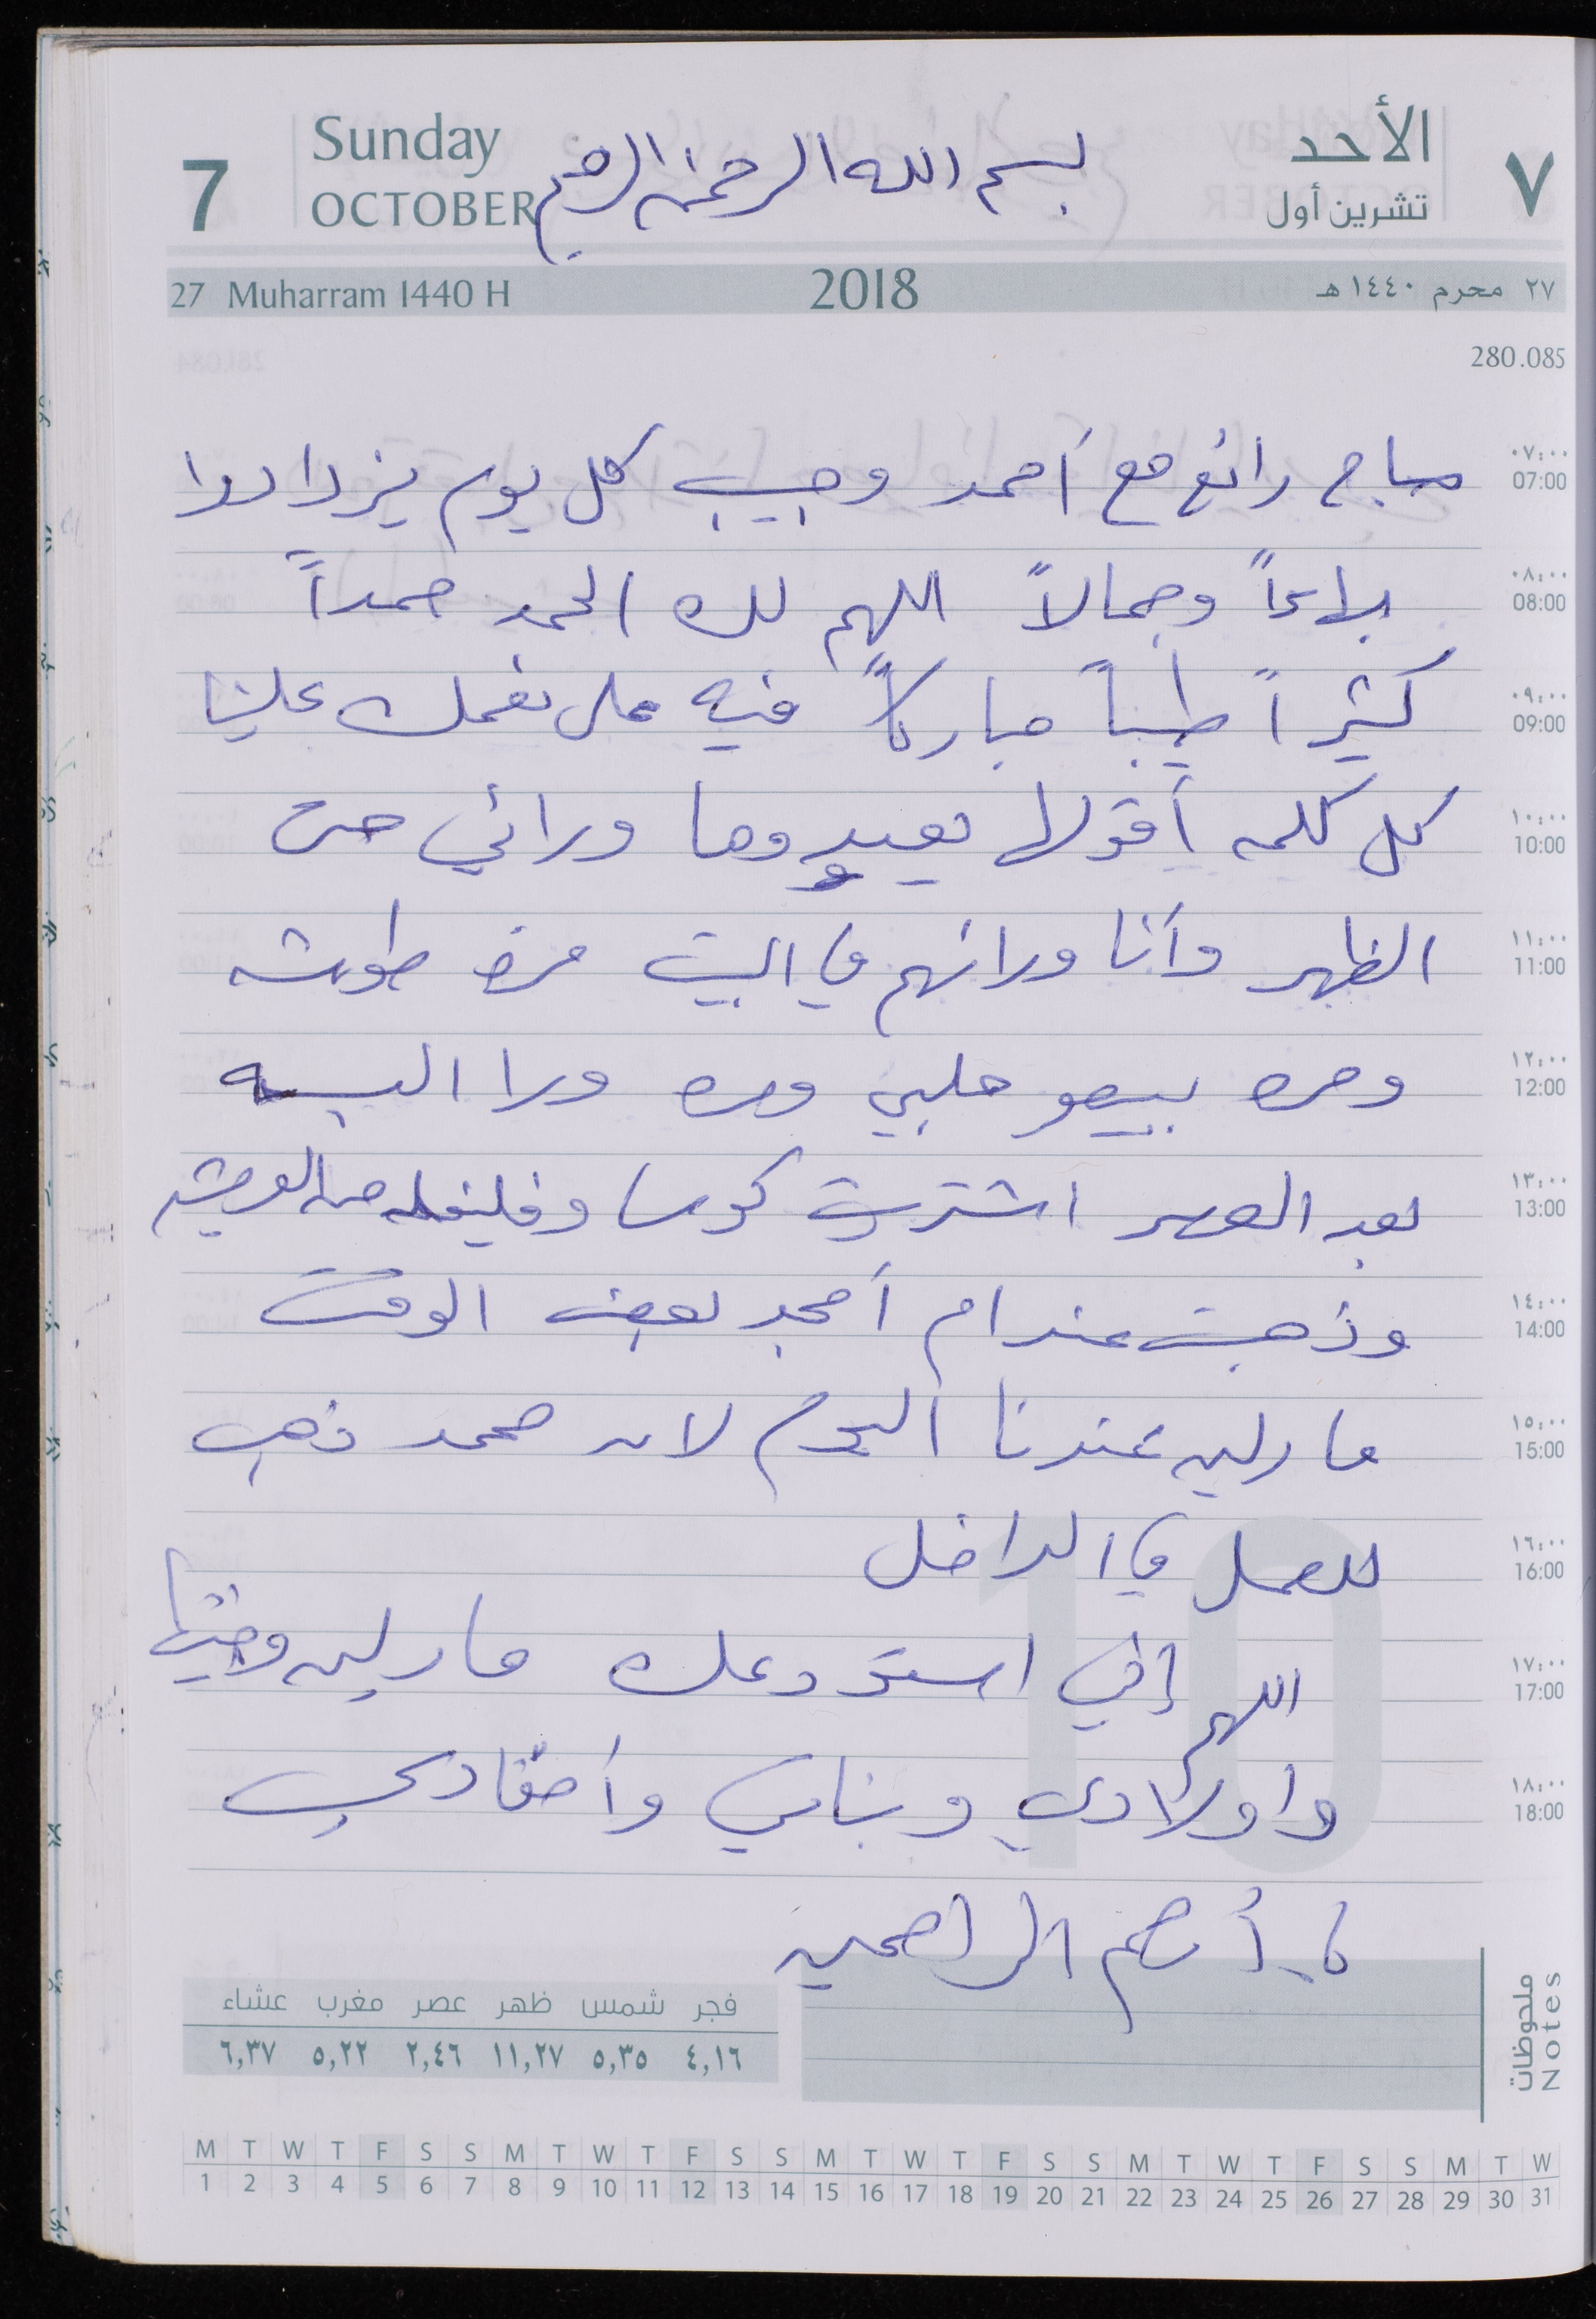 7
Sunday
OCTOBER
بسم الله الرحمن الرحيم
الأحد
تشرين أول
٧
27 Muharram 1440 H
2018
٢٧ محرم ١٤٤٠ هـ
280.085
٠٧:٠٠
07:00
صباح رائع مع أحمد وحبيب كل يوم يزدادوا
٠٨:٠٠
08:00
وجمالاً اللهم لك الحمد حمداً
٠٩:٠٠
09:00
كثيراً طيباً مباركاً فيه على نعمك علينا
١٠:٠٠
10:00
كل كلمه أقولها يعيدوها ورائي حتى
١١:٠٠
11:00
الظهر وأنا ورائهم في البيت مره طوشه
١٢:٠٠
12:00
ومره ومره ورا البسه
١٣:٠٠
13:00
بعد العصر اشتريت كوسا وفليفله من
١٤:٠٠
14:00
وذهبت عند ام أمجد بعض الوقت
١٥:٠٠
15:00
مارلين عندنا اليوم لان محمد ذهب
١٦:٠٠
16:00
للعمل في الداخل
١٧:٠٠
17:00
اللهم إني استودعك مارلين وجنينها
١٨:٠٠
18:00
واولادي وبناتي وأحفادي
يا أرحم الراحمين
ملحوظات
Notes
فجر شمس ظهر عصر مغرب عشاء
٤,١٦ ٥,٣٥ ١١,٢٧ ٢,٤٦ ٥,٢٢ ٦,٣٧
10
M T W T F S S M T W T F S S M T W T F S S M T W T F S S M T W
1 2 3 4 5 6 7 8 9 10 11 12 13 14 15 16 17 18 19 20 21 22 23 24 25 26 27 28 29 30 31